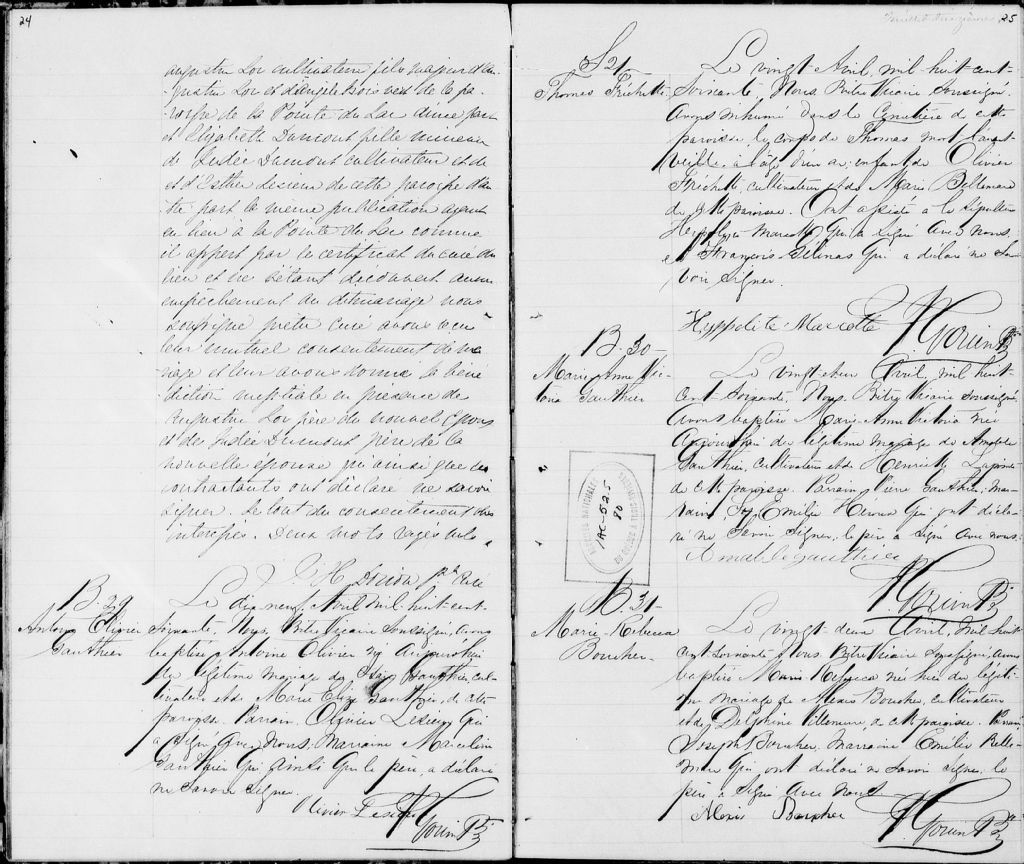 24
augustin Lor cultivateur fils majeur d'au-
gustin Lor et d'angele trois de la pa-
roisse de la Pointe du Lac d'une part
et d'Elizabeth Dumont fille mineure
de Judée Dumont cultivateur et de
et d'Esther Lesieur de cette paroisse d'au-
tre part la même publication ayant
eu lieu à la Pointe du Lac comme
il appert par le certificat du curé du
lieu et ne s'étant découvert aucun
empêchement au dit mariage nous
soussigné prêtre curé avons reçu
leur mutuel consentement de ma-
riage et leur avons donné la béné-
diction nuptiale en présence de
augustin Lor père du nouvel Epoux
et de Judée Dumont père de la
nouvelle épouse qui ainsi que les
contractants ont déclaré ne savoir
signer. Le tout du consentement des
intéressés. Deux mots rayés nuls
H Dorion Ptre Curé
B. 29
Antoine Olivier
Gauthier
Le dix neuf Avril mil huit cent
soixante, Nous, Ptre Vicaire soussigné, avons
baptisé Antoine Olivier né aujourd'hui
du légitime mariage de Gauthier, cul-
tivateur et de Marie Gauthier, de cette
paroisse. Parrain Olivier Lesieur qui
a signé avec nous. Marraine Marceline
Gauthier qui ainsi que le père, a déclaré
ne savoir signer.
Olivier Lesieur
Ptre
25
S 21
Thomas Fréchette
Le vingt Avril, mil huit cent
soixante, Nous Prêtre Vicaire soussigné
avons inhumé dans le cimetière de cette
paroisse, le corps de Thomas mort l'avant
veille, à l'âge d'un an, enfant de Olivier
Fréchette, cultivateur et de Marie Bellemare
de cette paroisse. Ont assisté à la sépulture
Hyppolite Marcotte qui a signé avec nous
et François Gélinas qui a déclaré ne sa-
voir signer.
Hyppolite Marcotte
Ptre
B. 30
Marie Anne Vic-
toria Gauthier
Le vingt un Avril mil huit
cent soixante, Nous, Prêtre Vicaire soussigné
avons baptisé Marie Anne Victoria née
aujourd'hui du légitime mariage de Amable
Gauthier, cultivateur et de Henriette
de cette paroisse. Parrain Pierre Gauthier, mar-
raine, Emilie Heroux qui ont décla-
ré ne savoir signer, le père a signé avec nous.
Amable gauthier
Ptre
B. 31
Marie-Rebecca
Boucher
Le vingt deux Avril, mil huit
cent soixante, Nous Prêtre Vicaire soussigné, avons
baptisé Marie Rebecca née hier du légiti-
me mariage de Alexis Boucher, cultivateur
et de Delphine Villemure de cette paroisse. Parrain
Joseph Boucher. Marraine Emilie Belle-
mare qui ont déclaré ne savoir signer, le
père a signé avec nous
Alexis Boucher
Ptre
ARCHIVES NATIONALES
DU QUÉBEC